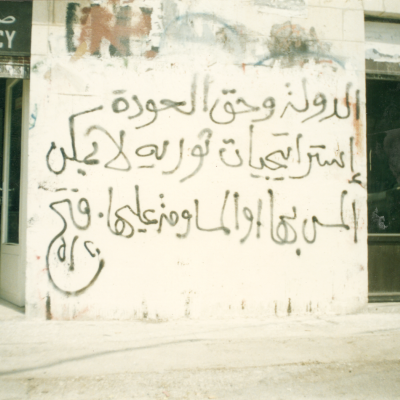 CY
الدولة وحق العودة
إستراتيجيات ثوريه لا يمكن
المس بها او المساومة عليها. فتح